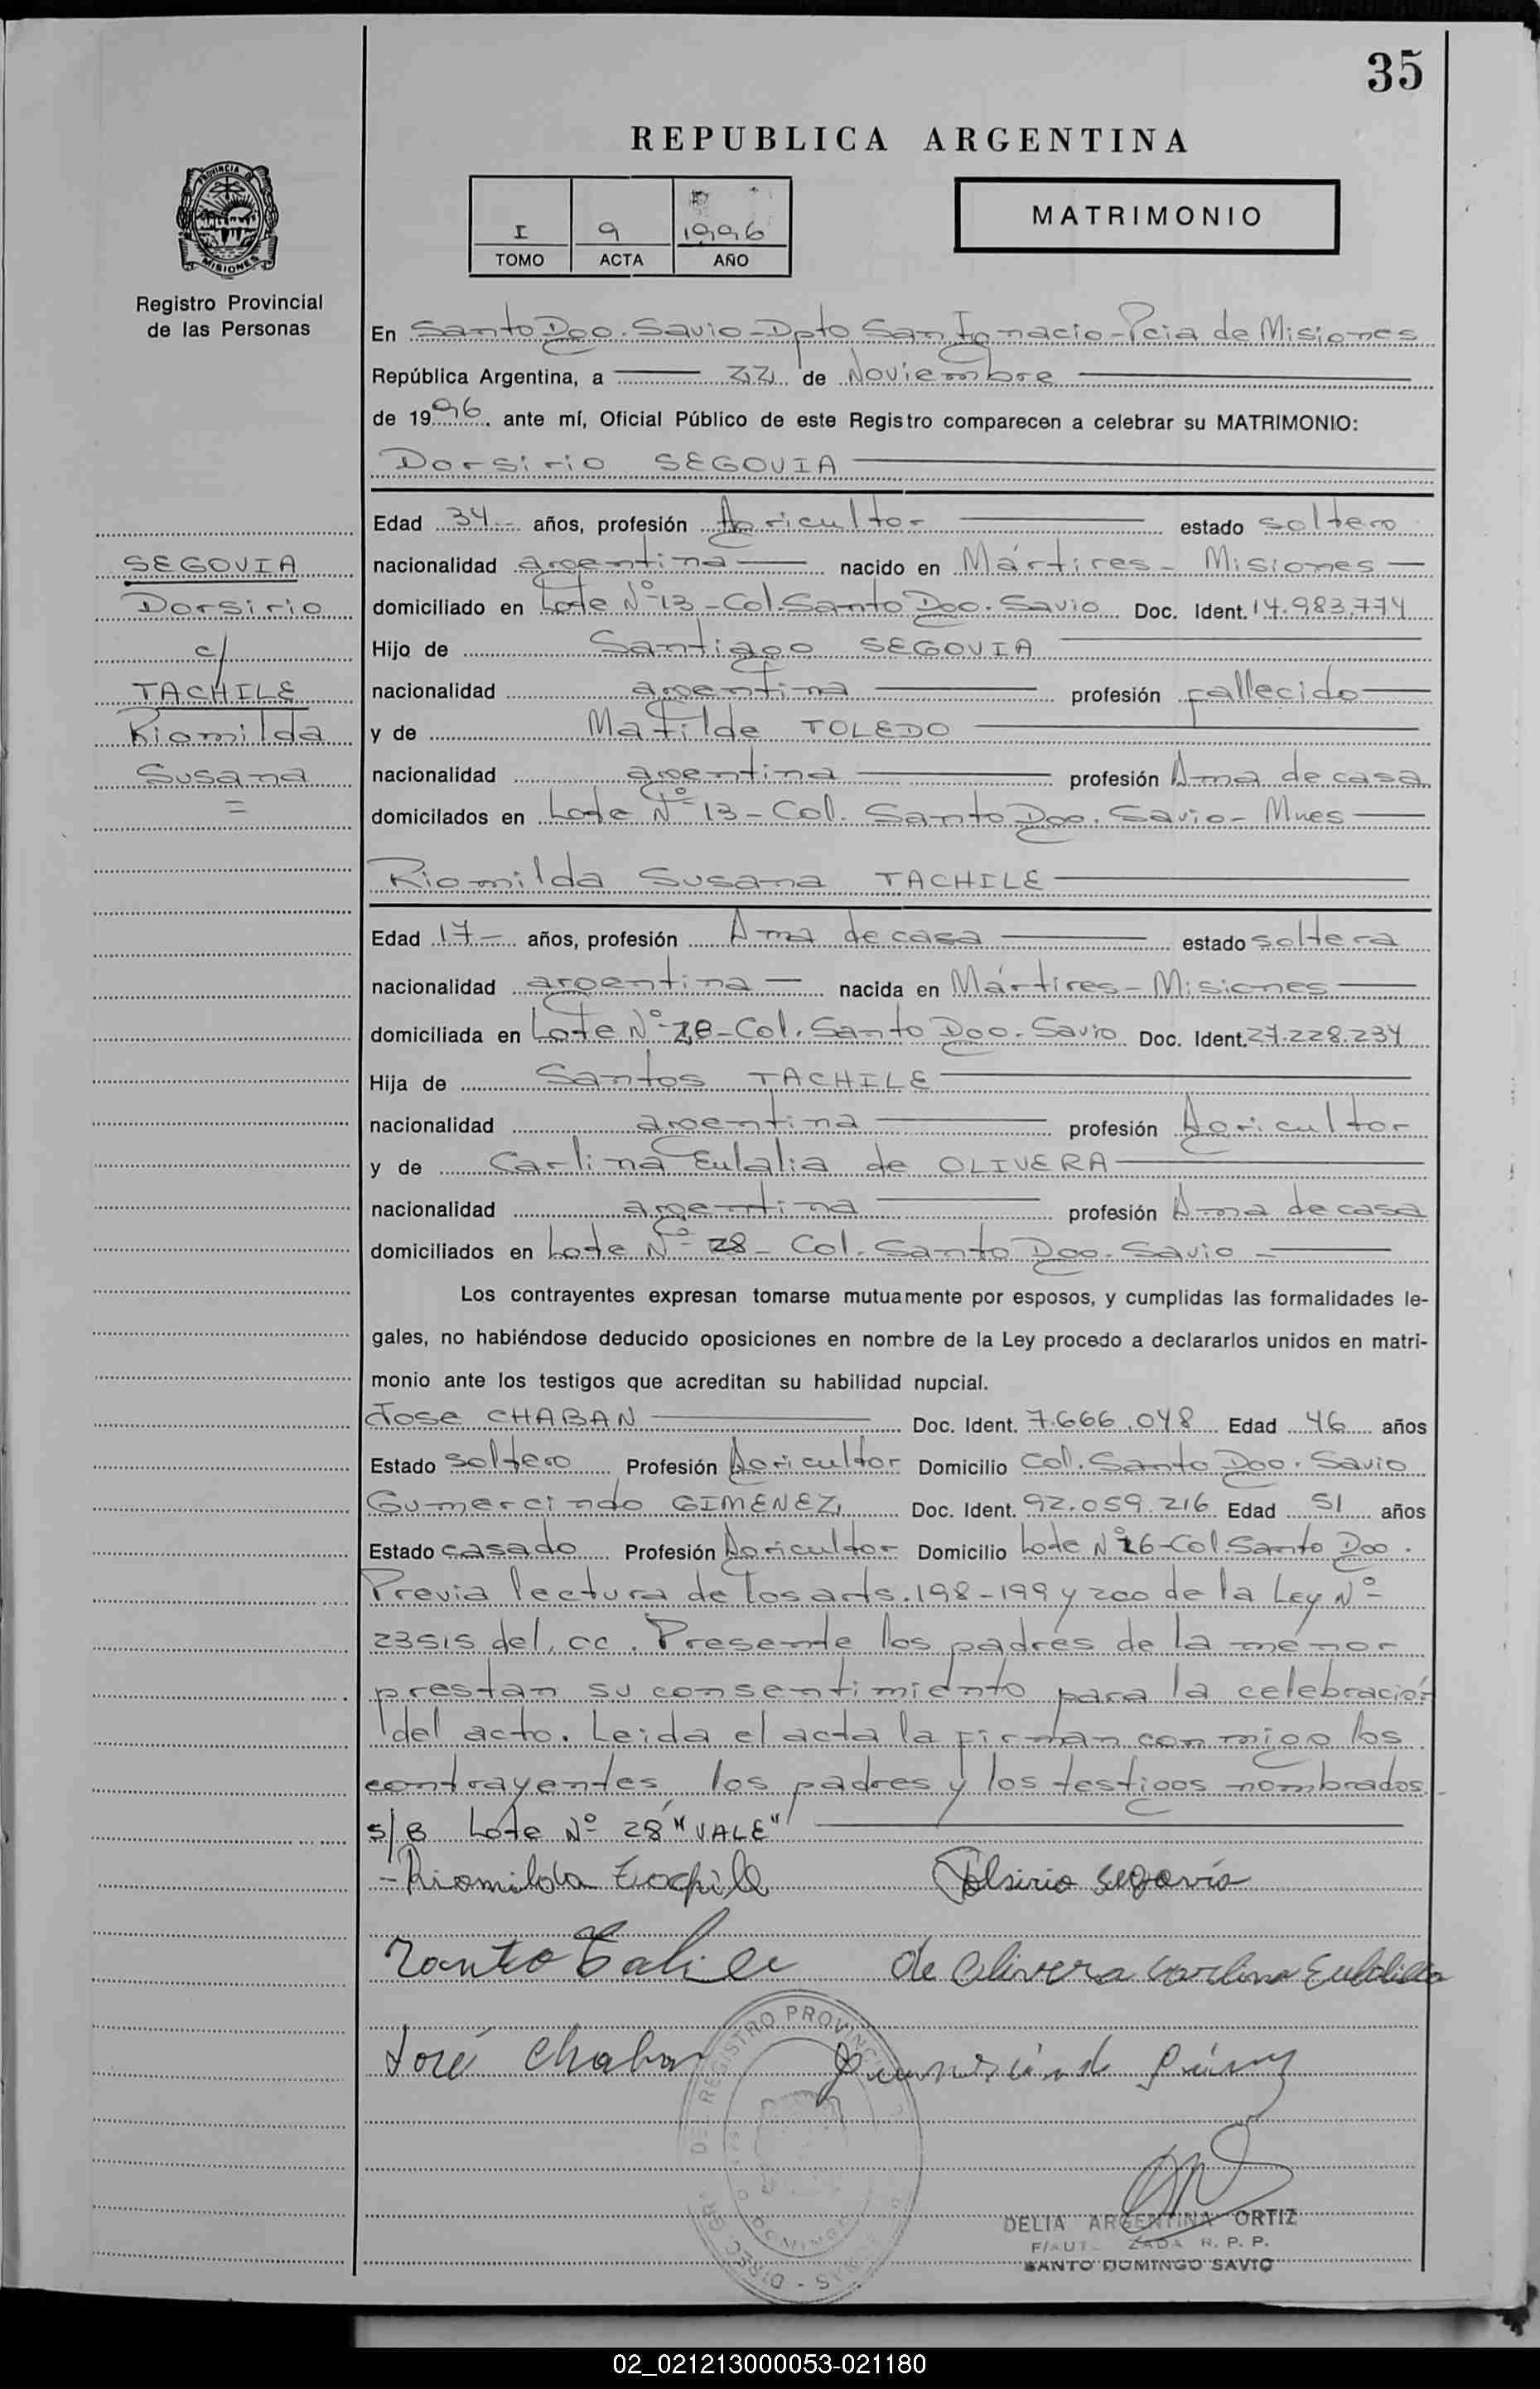 35
REPUBLICA ARGENTINA
PROVINCIA DE
MISIONES
Registro Provincial
de las Personas
I 9 1996
TOMO ACTA AÑO
MATRIMONIO
En Santo Dgo. Savio - Dpto San Ignacio - Pcia de Misiones
República Argentina, a 22 de Noviembre
de 1996 ante mí, Oficial Público de este Registro comparecen a celebrar su MATRIMONIO:
Dorsirio SEGOVIA
Edad 34 - años, profesión Agricultor estado soltero
nacionalidad argentina nacido en Mártires - Misiones
domiciliado en Lote Nº 13 - Col. Santo Dgo. Savio Doc. Ident. 14.983.774
Hijo de Santiago SEGOVIA
nacionalidad argentina profesión fallecido
y de Matilde TOLEDO
nacionalidad argentina profesión Ama de casa
domicilados en Lote Nº 13 - Col. Santo Dgo. Savio - Mnes
SEGOVIA
Dorsirio
c/
TACHILE
Riomilda
Susana
=
Riomilda Susana TACHILE
Edad 17 - años, profesión Ama de casa estado soltera
nacionalidad argentina nacida en Mártires - Misiones
domiciliada en Lote Nº 28 - Col. Santo Dgo. Savio Doc. Ident. 27.228.234
Hija de Santos TACHILE
nacionalidad argentina profesión Agricultor
y de Carlina Eulalia de OLIVERA
nacionalidad argentina profesión Ama de casa
domiciliados en Lote Nº 28 - Col. Santo Dgo. Savio -
Los contrayentes expresan tomarse mutuamente por esposos, y cumplidas las formalidades le-
gales, no habiéndose deducido oposiciones en nombre de la Ley procedo a declararlos unidos en matri-
monio ante los testigos que acreditan su habilidad nupcial.
Jose CHABAN Doc. Ident. 7.666.048 Edad 46 años
Estado soltero Profesión Agricultor Domicilio Col. Santo Dgo. Savio
Gumercindo GIMENEZ Doc. Ident. 92.059.216 Edad 51 años
Estado casado Profesión Agricultor Domicilio Lote Nº 26 - Col. Santo Dgo.
Previa lectura de los arts. 198 - 199 y 200 de la Ley Nº
23515 del. cc. Presente los padres de la menor
prestan su consentimiento para la celebración
del acto. Leida el acta la firman con migo los
contrayentes, los padres y los testigos nombrados
s/B Lote Nº 28 "VALE"
- Riomilda Segovia
de Olivera Carlina Eulalia
José Chaban
DELIA ARGENTINA ORTIZ
R. P. P.
SANTO DOMINGO SAVIO
02_021213000053-021180